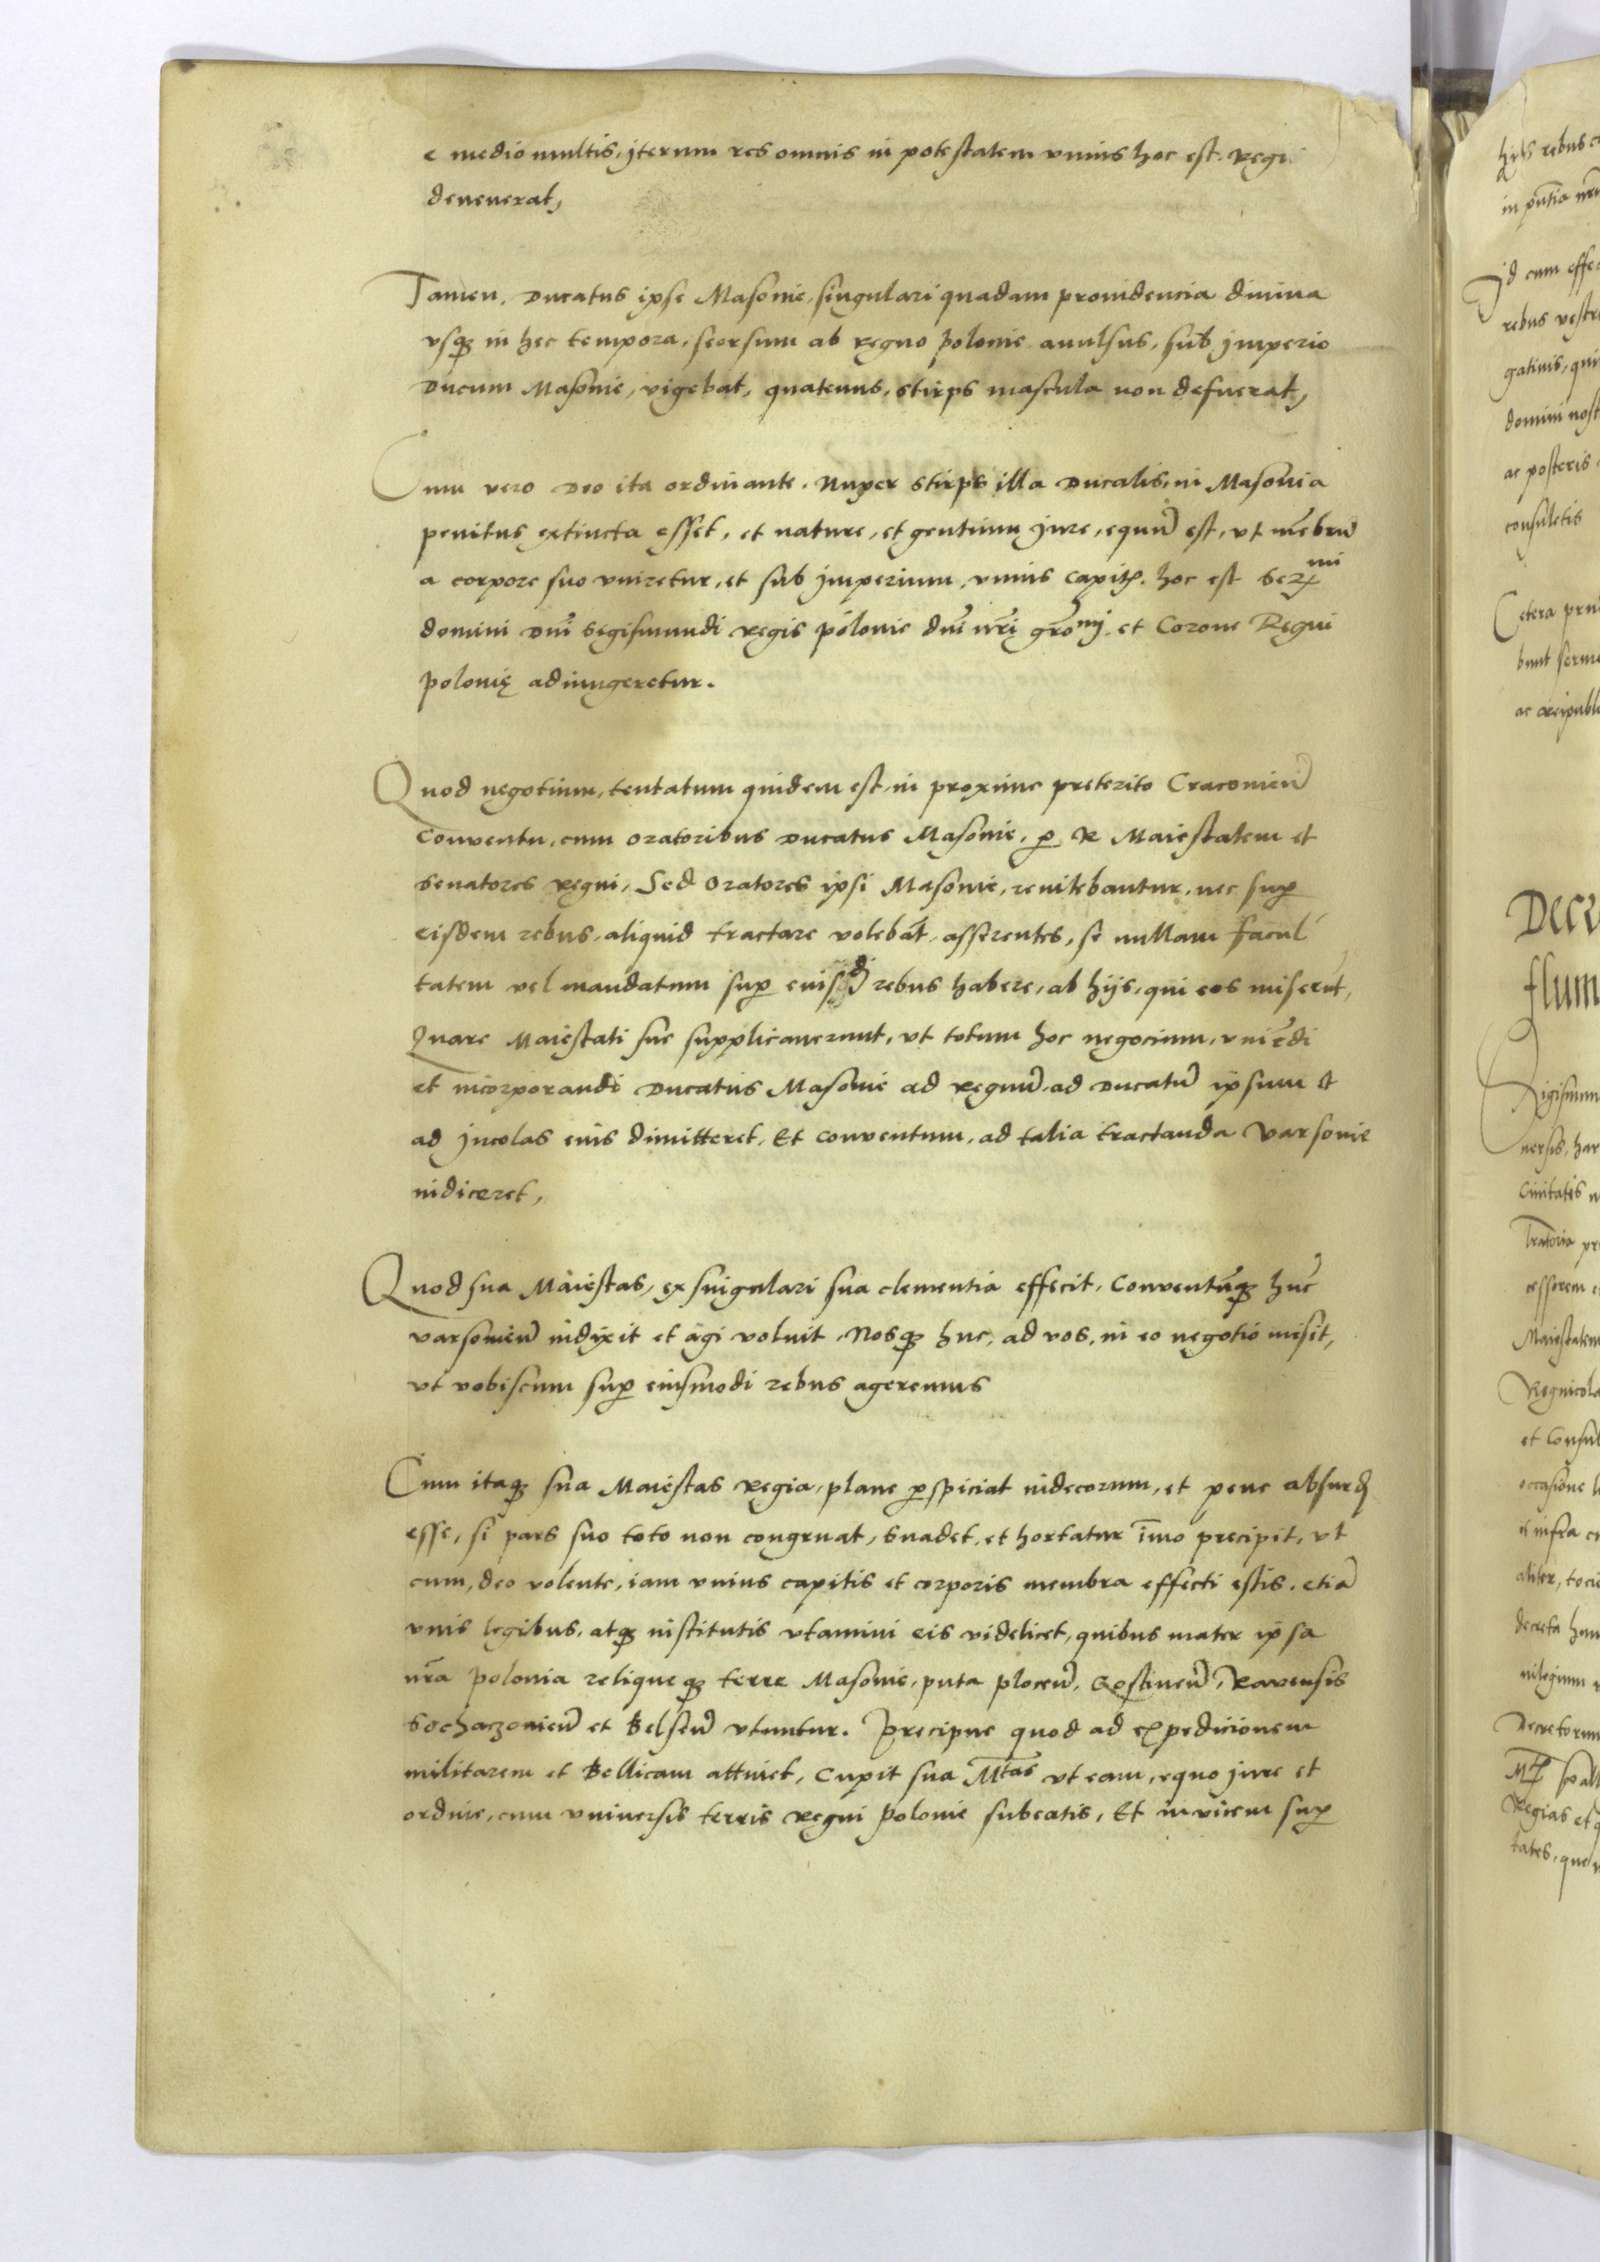 e medio multis, iterum res omnis in potestatem vnius hoc est. Regis
devenerat,
Tamen. Ducatus ipse Masovie, singulari quadam providencia divina
vsqz in hec tempora, seorsum ab regno polonie avulsus, sub imperio
Ducum Masovie, vigebat, quatenus, stirps mascula non defuerat,
Cum vero Deo ita ordinante. Nuper stirps illa Ducalis, in Masovia
penitus extincta esset, et nature, et gentium jure, equũ est, vt mẽbrũ
a corpore suo vniretur, et sub imperium, vnius capitis. hoc est Sermi
domini Dnĩ Segismundi regis polonie dnĩ nr̃i grõmj. et Corone Regni
polonię adiungeretur.
Quod negotium, tentatum quidem est, in proxime preterito Cracovien̄
Conventu, cum oratoribus Ducatus Masovie, p̱ R Maiestatem et
Senatores regni, Sed Oratores ipsi Masovie, renitebantur, nec sup̱
eisdem rebus, aliquid tractare volebãt, asserentes, se nullam facul
tatem vel mandatum sup̱ euisdẽ rebus habere, ab hijs, qui eos miserũt,
Quare Maiestati sue supplicaverunt, vt totum hoc negocium, vniẽdi
et incorporandi Ducatus Masovie ad regnũ, ad Ducatũ ipsum et
ad jncolas eius dimitteret, Et conventum, ad talia tractanda Varsovie
indiceret,
Quod sua Maiestas, ex singulari sua clementia effecit, Conventũqz hũc
varsovien̄ indixit et agi voluit, Nosqz huc, ad vos, in eo negotio misit,
vt vobiscum sup̱ eiusmodi rebus ageremus
Cum itaqz sua Maiestas Regia, plane p̱spiciat indecorum, et pene absurdũ
esse, si pars suo toto non congruat, Suadet, et hortatur ĩmo precipit, vt
cum, deo volente, iam vnius capitis et corporis membra effecti estis, etiã
vnis legibus, atqz institutis vtamini eis videlicet, quibus mater ipsa
nr̃a polonia reliqueqz terre Masovie, puta plocen̄, Gostinen̄, Ravensis
Sochaczovien̄ et Belsen̄ vtuntur. Precipue quod ad expedicionem
militarem et Bellicam attinet, Cupit sua Mtas vt eam, equo jure et
ordine, cum vniversis terris Regni polonie subeatis, Et invicem sup̱